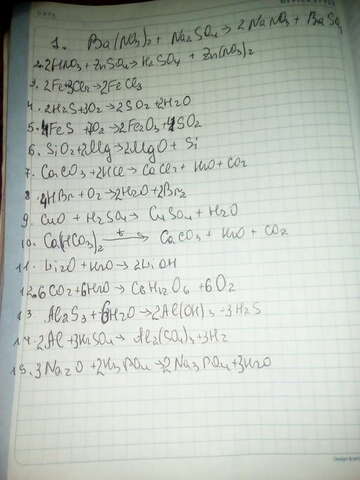 1. Ba(NO3)2 + Na2SO4 → 2NaNO3 + BaSO4
2. 2HNO3 + ZnSO4 → H2SO4 + Zn(NO3)2
3. 2Fe+3Cl2 → 2FeCl3
4. 2H2S+3O2 → 2SO2 + 2H2O
5. 4FeS + 7O2 → 2Fe2O3 + 4SO2
6. SiO2 + 2Mg → 2MgO + Si
7. CaCO3 + 2HCl → CaCl2 + H2O + CO2
8. 4HBr + O2 → 2H2O + 2Br2
9. CuO + H2SO4 → CuSO4 + H2O
10. Ca(HCO3)2 t→ CaCO3 + H2O + CO2
11. Li2O + H2O → 2LiOH
12. 6CO2 + 6H2O → C6H12O6 + 6O2
13. Al2S3 + 6H2O → 2Al(OH)3 + 3H2S
14. 2Al + 3H2SO4 → Al2(SO4)3 + 3H2
15. 3Na2O + 2H3PO4 → 2Na3PO4 + 3H2O